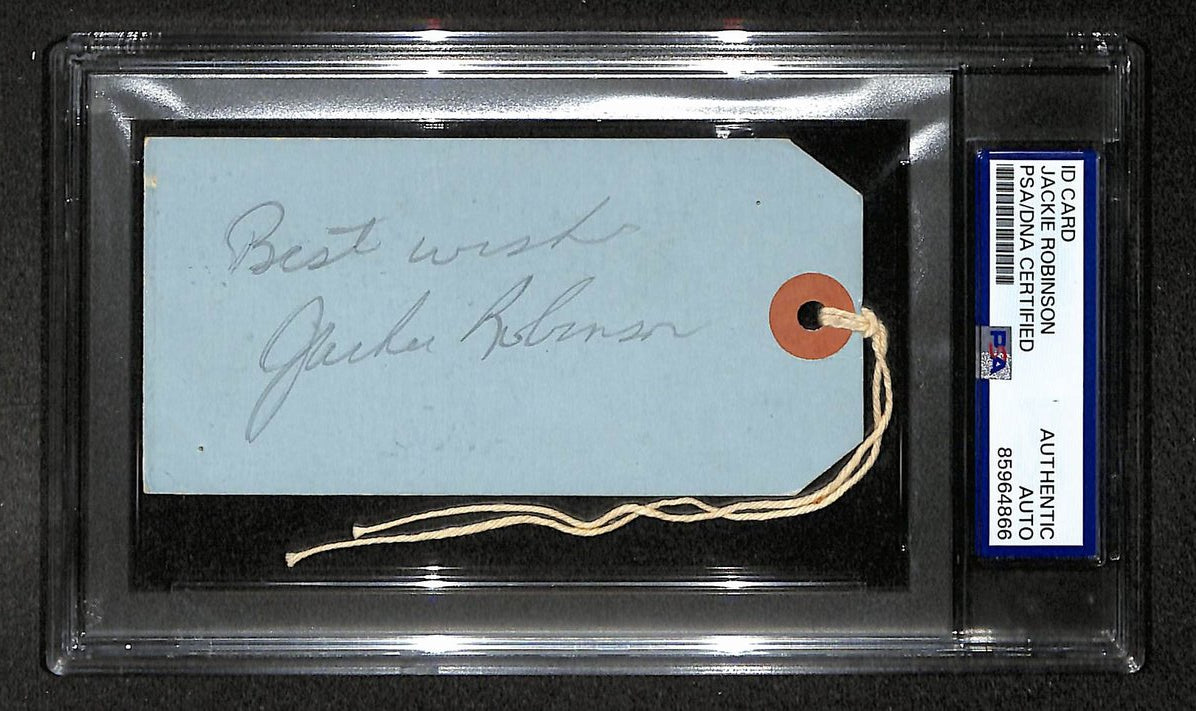 Best wishes
Jackie Robinson
ID CARD
JACKIE ROBINSON
PSA/DNA CERTIFIED
PSA
AUTHENTIC
AUTO
85964866